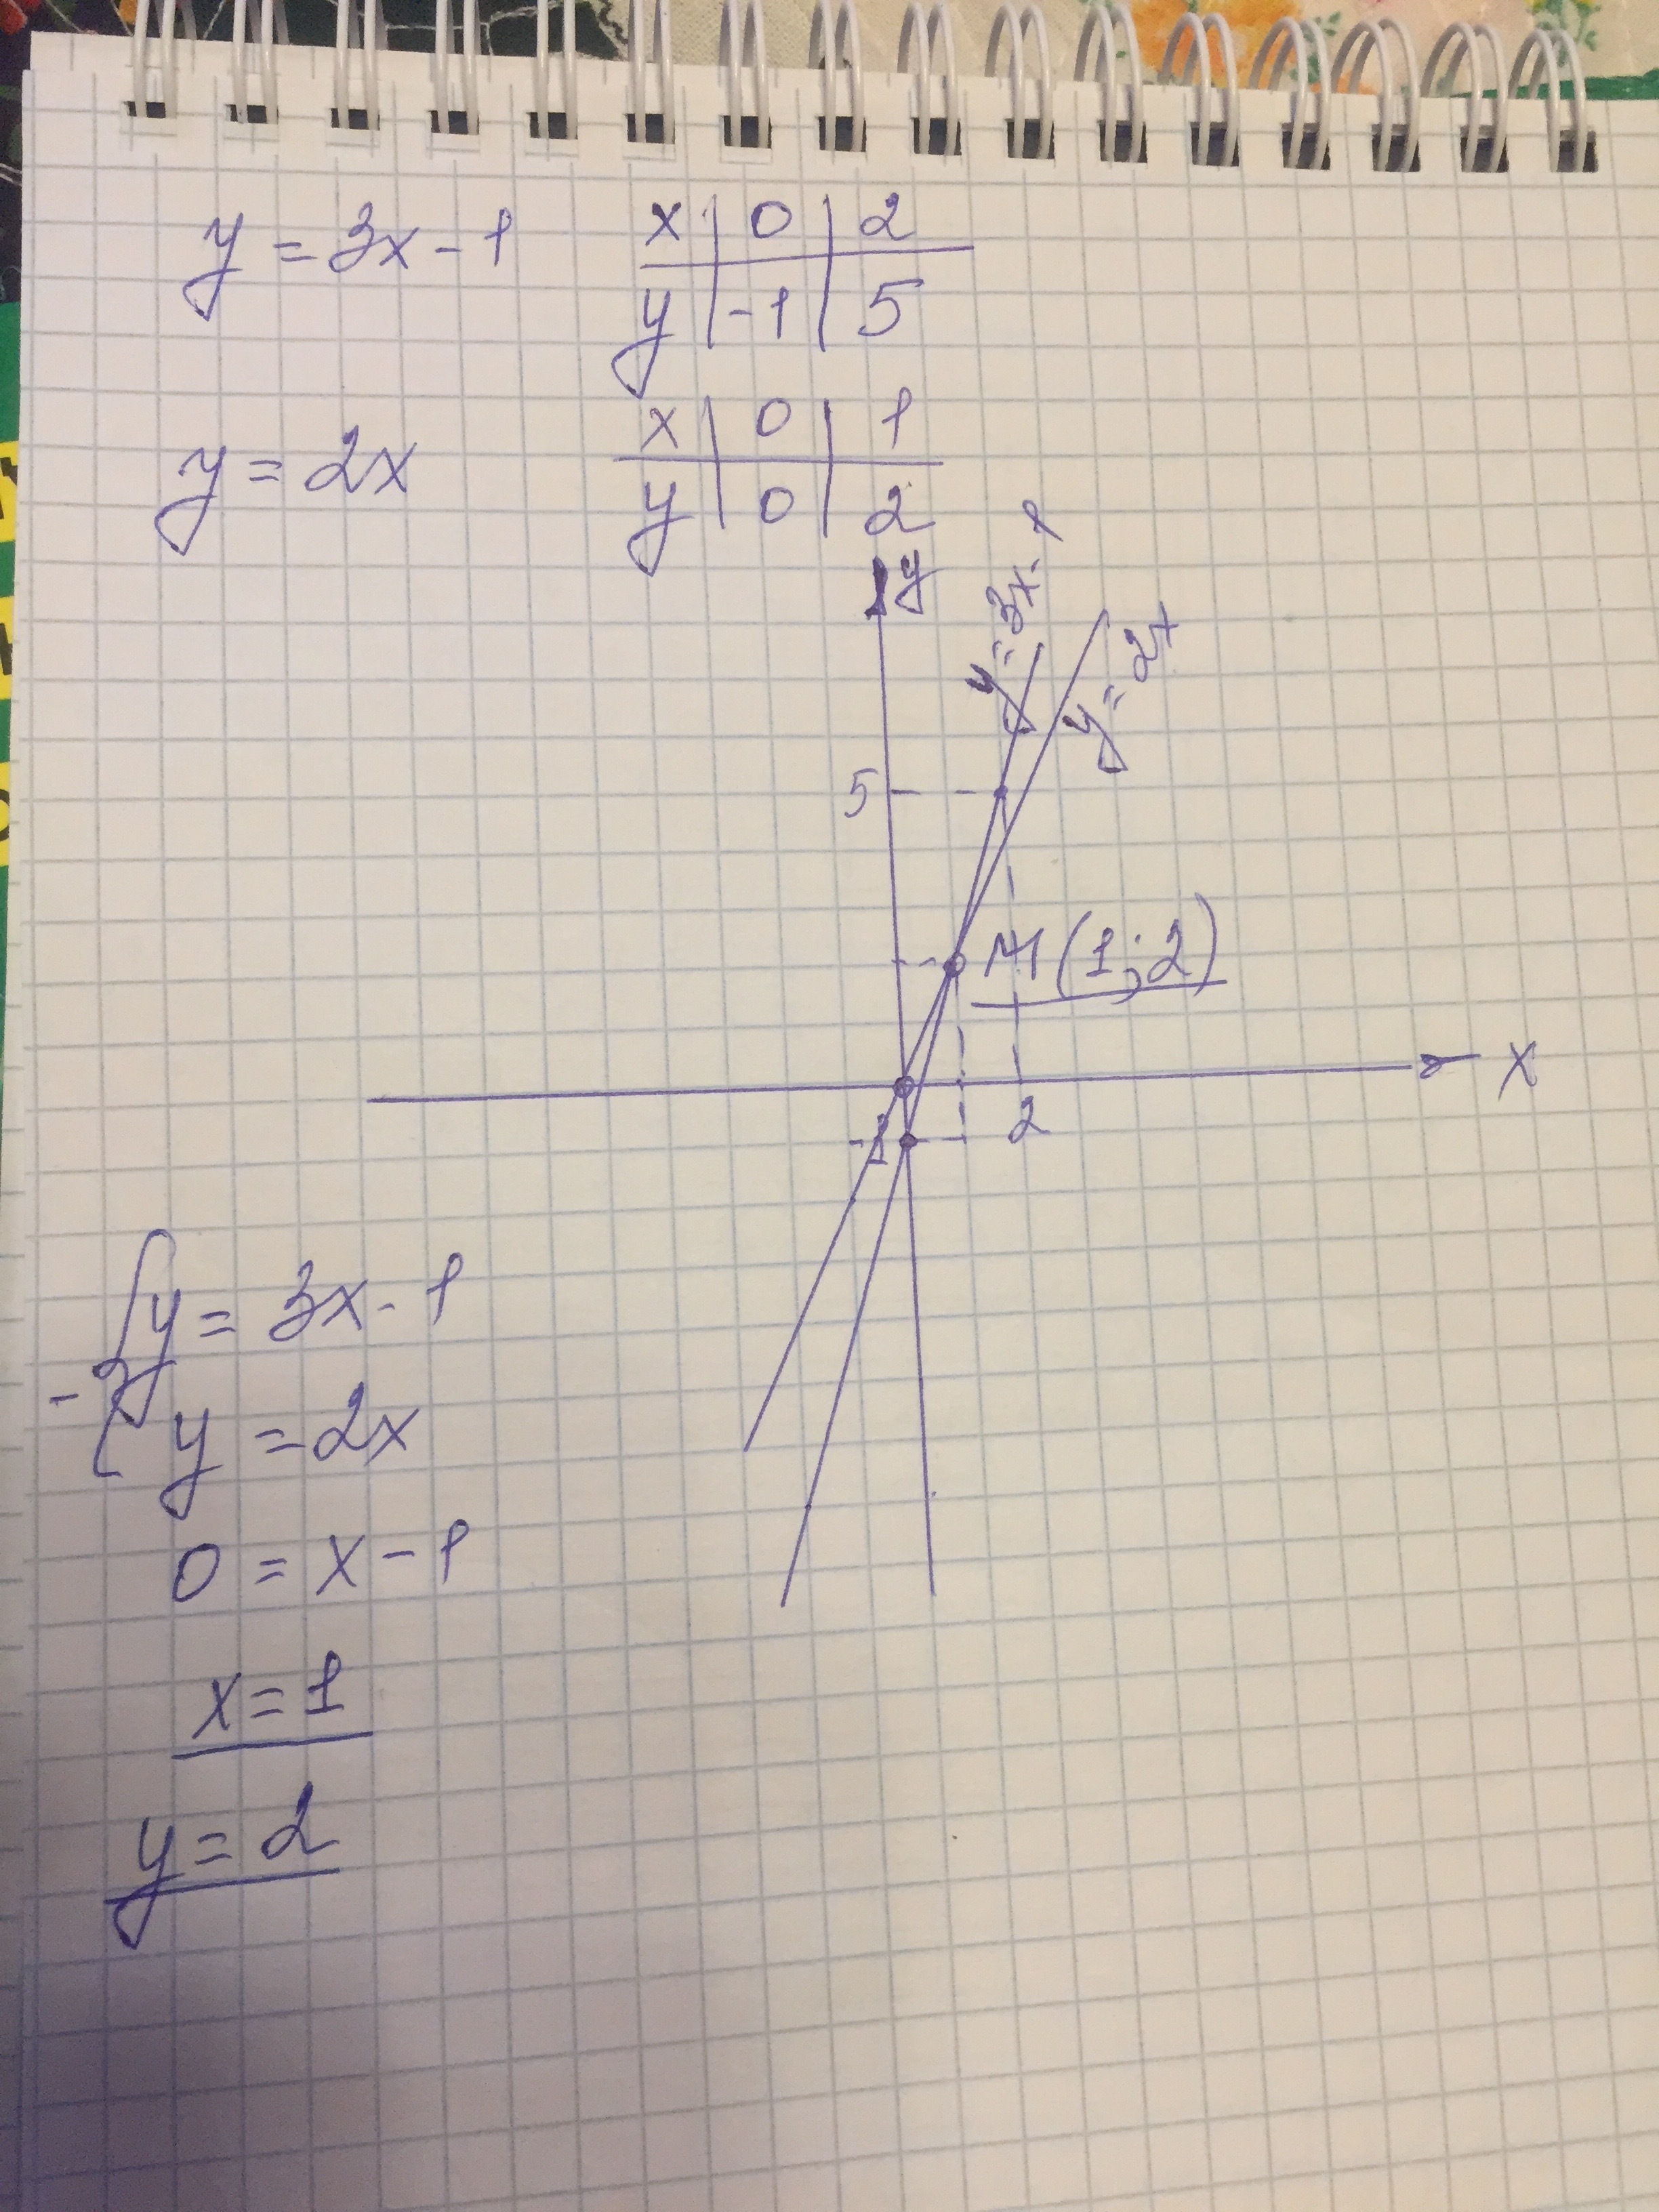 y = 3x - 1
x | 0 | 2
y | -1 | 5
y = 2x
x | 0 | 1
y | 0 | 2
y
y = 3x - 1
y = 2x
5
M(1;2)
x
-1
2
y = 3x - 1
-
y = 2x
0 = x - 1
x = 1
y = 2